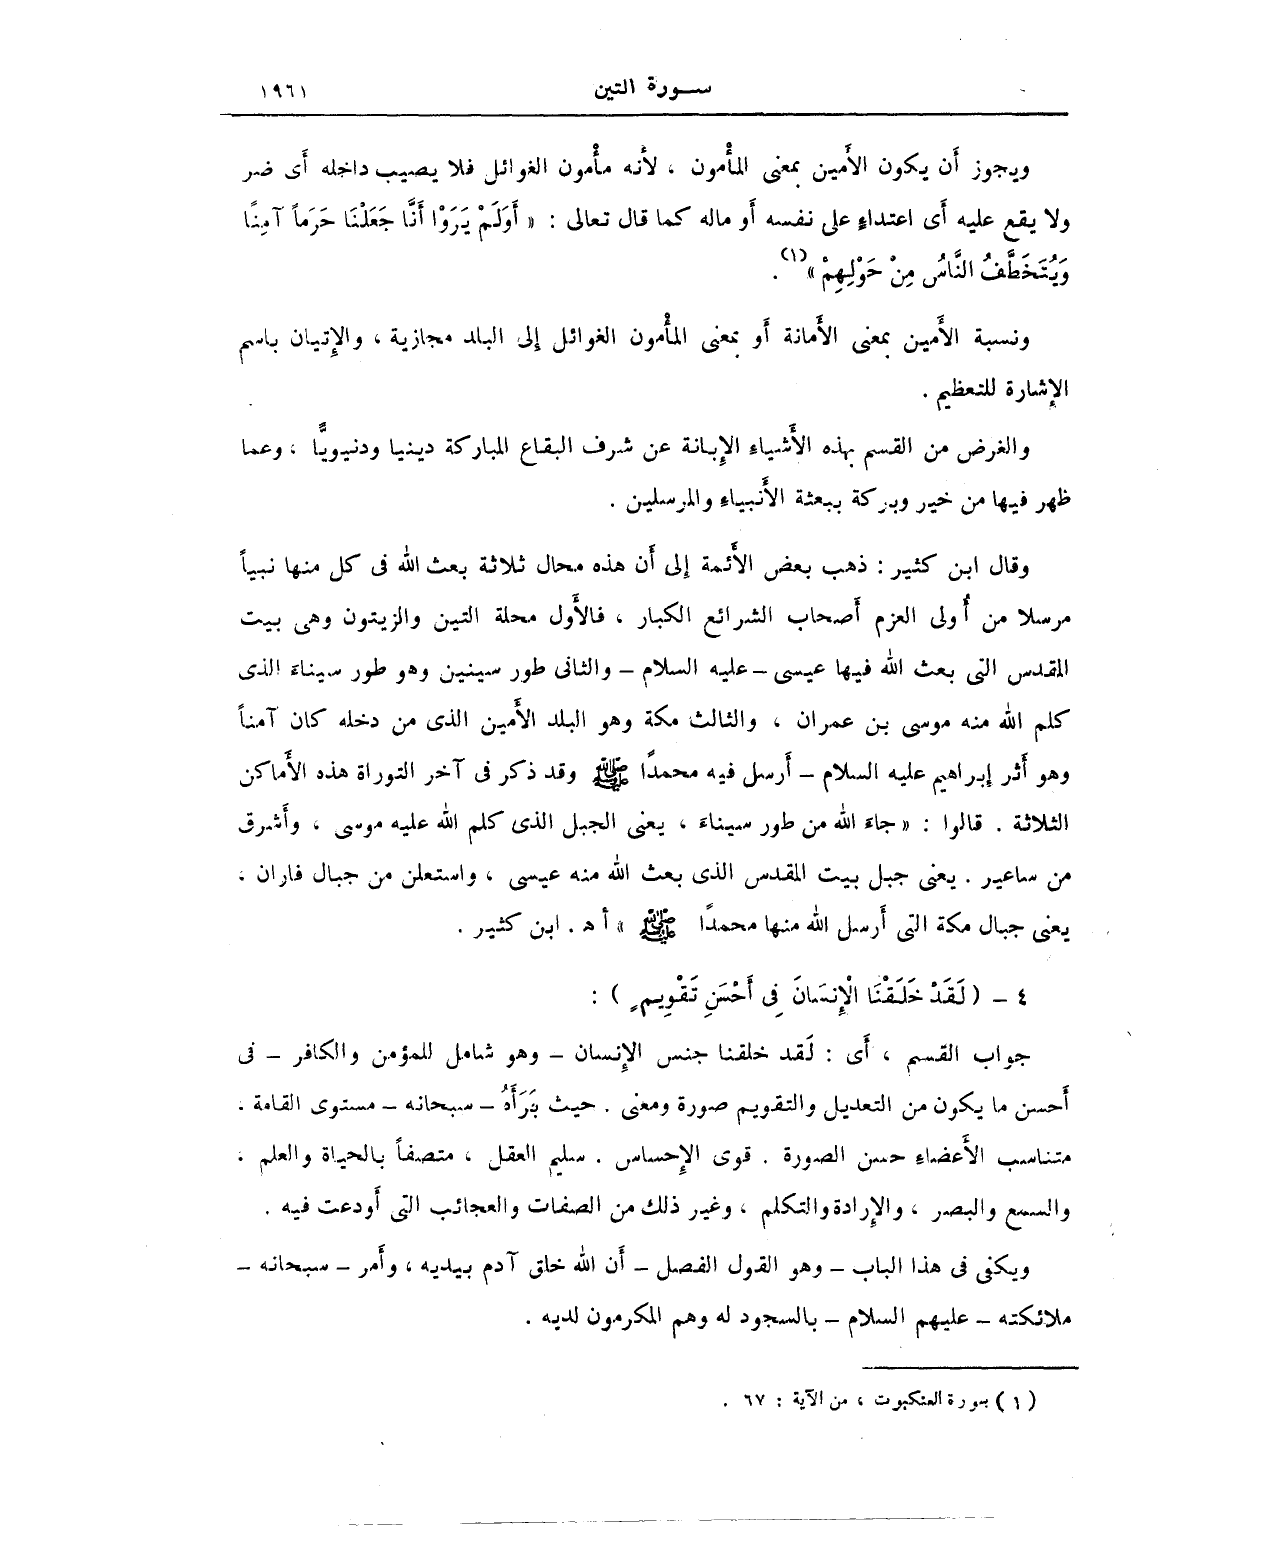 سورة التين ١٩٦١
ويجوز أن يكون الأَمين بمعنى المأْمون ، لأَنه مأْمون الغوائل فلا يصيب داخله أَى ضر
ولا يقع عليه أَى اعتداءٍ على نفسه أَو ماله كما قال تعالى : « أَوَلَمْ يَرَوْا أَنَّا جَعَلْنَا حَرَماً آمِنًا
وَيُتَخَطَّفُ النَّاسُ مِنْ حَوْلِهِمْ »(١) .
ونسبة الأَمين بمعنى الأَمانة أَو بمعنى المأْمون الغوائل إلى البلد مجازية ، والإِتيان باسم
الإِشارة للتعظيم .
والغرض من القسم بهذه الأَشياء الإِبانة عن شرف البقاع المباركة دينيا ودنيويًّا ، وعما
ظهر فيها من خير وبركة ببعثة الأَنبياء والمرسلين .
وقال ابن كثير : ذهب بعض الأَئمة إلى أَن هذه محال ثلاثة بعث الله فى كل منها نبياً
مرسلا من أُولى العزم أَصحاب الشرائع الكبار ، فالأَول محلة التين والزيتون وهى بيت
المقدس التى بعث الله فيها عيسى – عليه السلام – والثانى طور سينين وهو طور سيناء الذى
كلم الله منه موسى بن عمران ، والثالث مكة وهو البلد الأَمين الذى من دخله كان آمناً
وهو أَثر إبراهيم عليه السلام – أَرسل فيه محمدًا ﷺ وقد ذكر فى آخر التوراة هذه الأَماكن
الثلاثة . قالوا : « جاءَ الله من طور سيناءَ ، يعنى الجبل الذى كلم الله عليه موسى ، وأَشرق
من ساعير . يعنى جبل بيت المقدس الذى بعث الله منه عيسى ، واستعلن من جبال فاران ،
يعنى جبال مكة التى أَرسل الله منها محمدًا ﷺ » أ ھ . ابن كثير .
٤ – ( لَقَدْ خَلَقْنَا الْإِنسَانَ فِى أَحْسَنِ تَقْوِيمٍ ) :
جواب القسم ، أَى : لَقد خلقنا جنس الإِنسان – وهو شامل للمؤمن والكافر – فى
أَحسن ما يكون من التعديل والتقويم صورة ومعنى . حيث بَرَأَهُ – سبحانه – مستوى القامة ،
متناسب الأَعضاءِ حسن الصورة . قوى الإِحساس . سليم العقل ، متصفاً بالحياة والعلم ،
والسمع والبصر ، والإِرادة والتكلم ، وغير ذلك من الصفات والعجائب التى أَودعت فيه .
ويكفى فى هذا الباب – وهو القول الفصل – أَن الله خلق آدم بيديه ، وأَمر – سبحانه –
ملائكته – عليهم السلام – بالسجود له وهم المكرمون لديه .
( ١ ) سورة العنكبوت ، من الآية : ٦٧ .